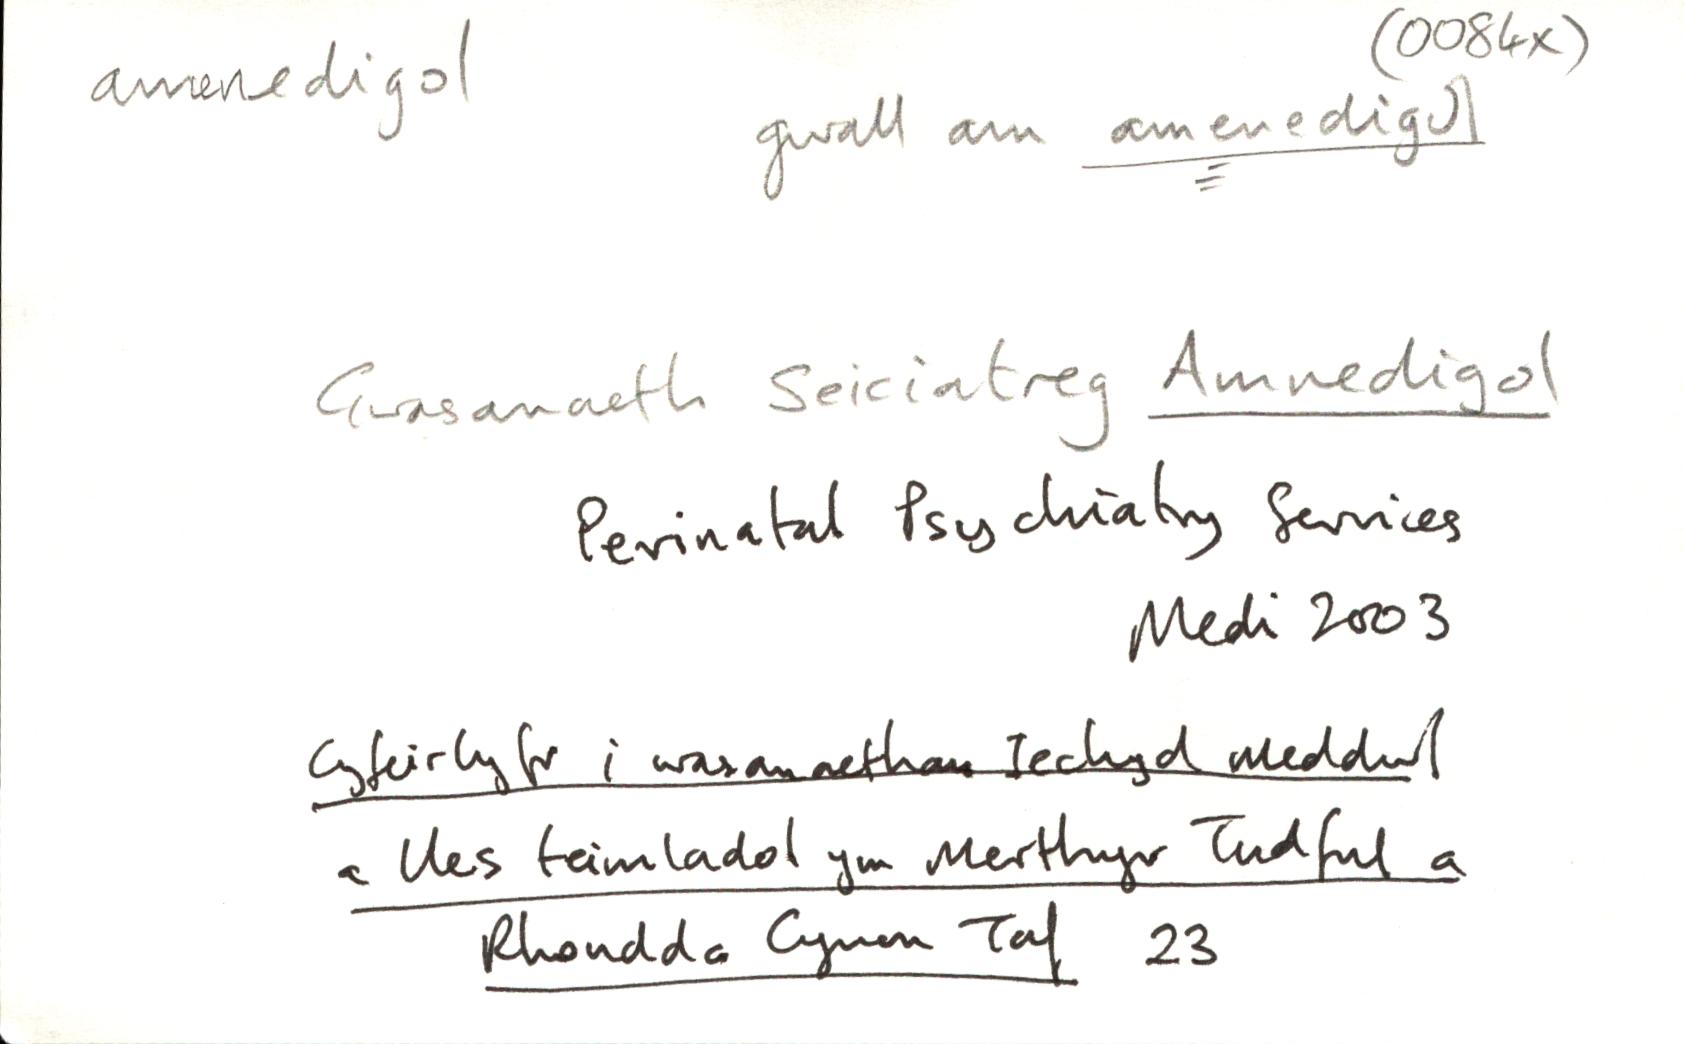 (0084x)
amenedigol
gwall am amenedigol
Gwasanaeth Seiciatreg Amnedigol
Perinatal Psychiatry Services
Medi 2003
Cyfeirlyfr i wasanaethau Iechyd Meddwl
a lles teimladol ym Merthyr Tudful a
Rhondda Cynon Taf 23